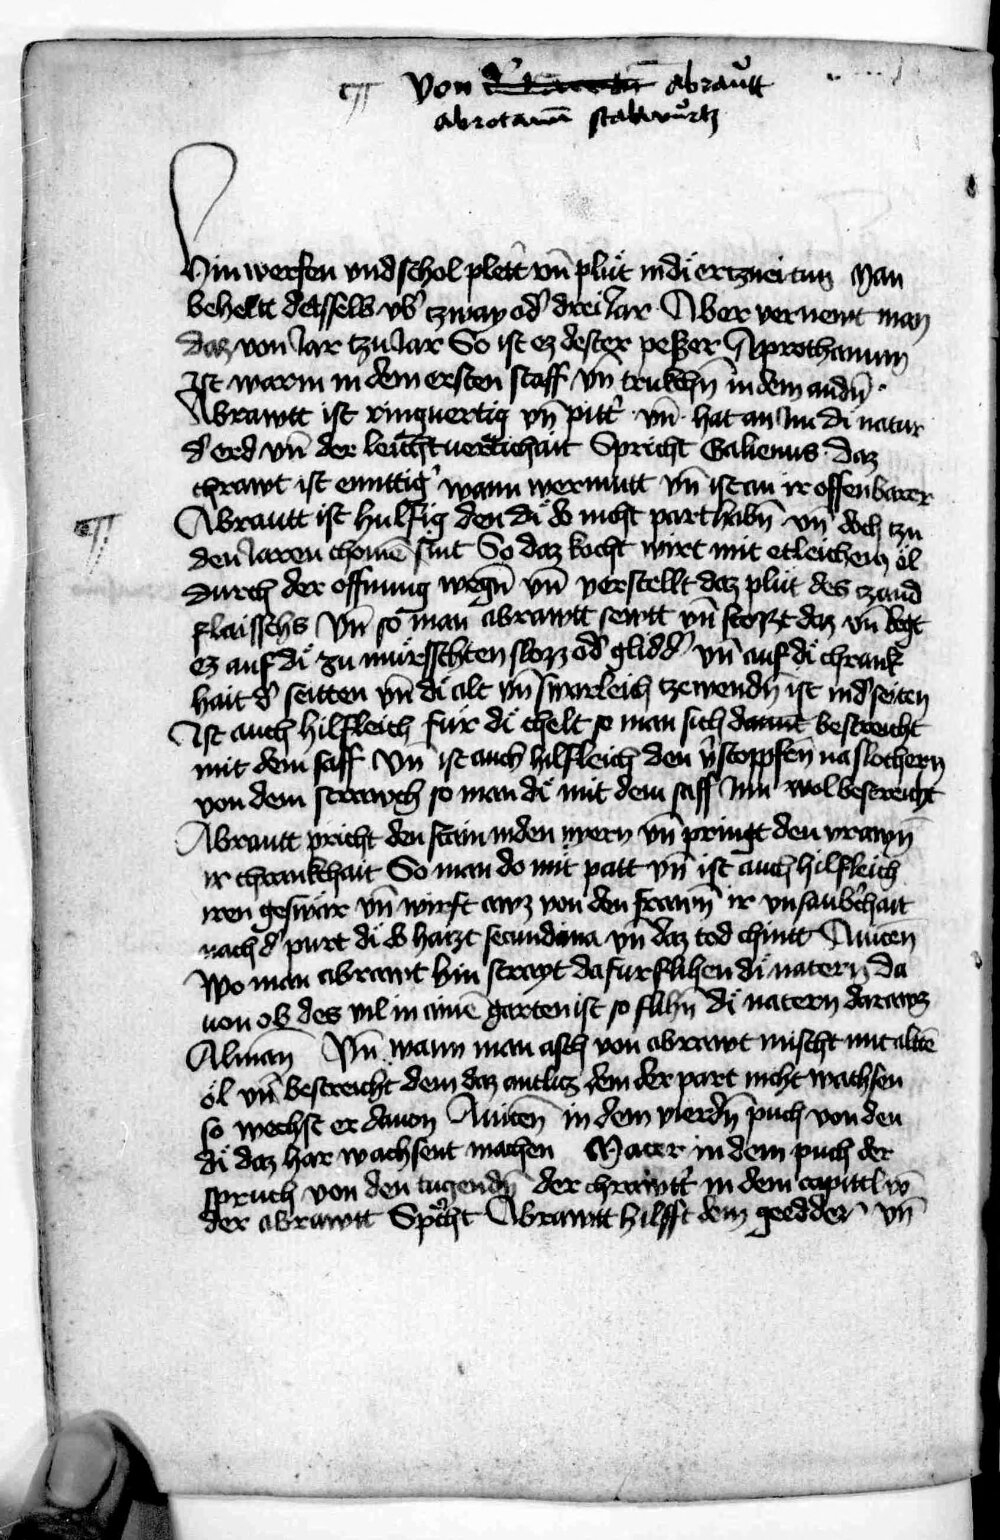 von abrautt
abrotanū stabwurtz
Hin werfen vnd schol pletī vn̄ plüt in di ertznei tun Man
beheltt dasselb vb' tzway od' drei Iar Aber vernewt man
daz von Iar tzu Iar So ist ez dester peßzer Aprothanum
Ist warm in dem ersten staff vn̄ trukchn̄ in dem andn̄ ·
Abrawtt ist ringuertig vn̄ pitt' vn̄ · hat an Im di natur
d' erd vn̄ der leichtuertichait Spricht Galienus · daz
chrawt ist wann wermutt vn̄ ist an ir offenbarer
Abrautt ist hulfig den di do nicht part habn̄ vn̄ doch tzu
den Iaren chomē sint So daz kocht wirt mit etleichem öl
durch der offnung wegn̄ vn̄ verstellt daz plüt des tzand
flaisschs Vn̄ so man abrawtt sewtt vn̄ stoßzt daz vn̄ legt
ez auf di zu mürsschten slozz od' glid' vn̄ auf di chrank
hait d' seitten vn̄ di alt vn̄ swarleich tzewendn̄ ist in d' seiten
Ist auch hilfleich für di chelt so man sich damit bestreicht
mit dem saff Vn̄ ist auch hilfleich den v'stoppfen naslochern
von dem strawch so man di mit dem saff Inn wol bestreicht
Abrautt pricht den stain in den niern vn̄ pringt den vrawn̄
ir chrankchait So man do mit patt vn̄ ist auch hilfleich
iren geswär vn̄ wirft awz von den frawn̄ ir vnsaub'chait
nach d' purt di do haizt secundina vn̄ daz tod chintt Auicen̄
Wo man abrawt hin strayt da fur flihen di natern da
uon ob des vil in ainē garten ist so flihn̄ di natern darawz
Alman̄ Vn̄ wann man asch von abrawt mischt mit altē
öl vn̄ bestreicht dem daz antlitz dem der part nicht wachsen
so wechst er dauon Auicen̄ in dem vierdn̄ puch von den
di daz har wachsent machen Macer in dem puch der
spruch von den tugendn̄ der chrawt' in dem capittl vō
der abrawtt Sp'cht Abrawtt hilfft dem geedder vn̄